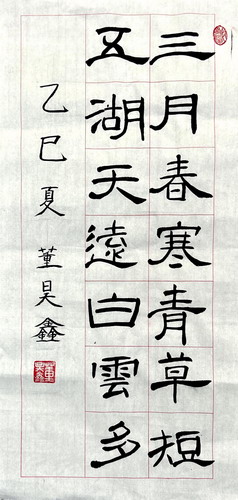 三月春寒青草短
五湖天遠白雲多
乙巳夏 董昊鑫